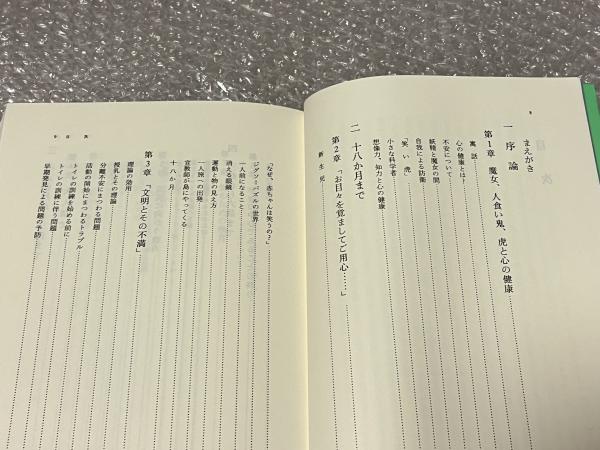 まえがき
一 序論
第1章 魔女、人食い鬼、虎と心の健康
寓話
心の健康とは?
不安について
妖精と魔女の間
自我による防衛
「笑い虎」
小さな科学者
想像力、知力と心の健康
二 十八か月まで
第2章 「お目々を覚ましてご用心……」
新生児
「なぜ、赤ちゃんは笑うの?」
ジグソーパズルの世界
一人前になること
消える眼鏡
運動と物の見方
一人旅への出発
宣教師が島にやってくる
十八か月
第3章 「文明とその不満」
理論の活用
授乳とその理論
分離不安にまつわる問題
活動の開始にまつわるトラブル
トイレの訓練を始める前に
トイレの訓練に伴う問題
早期発見による問題の予防